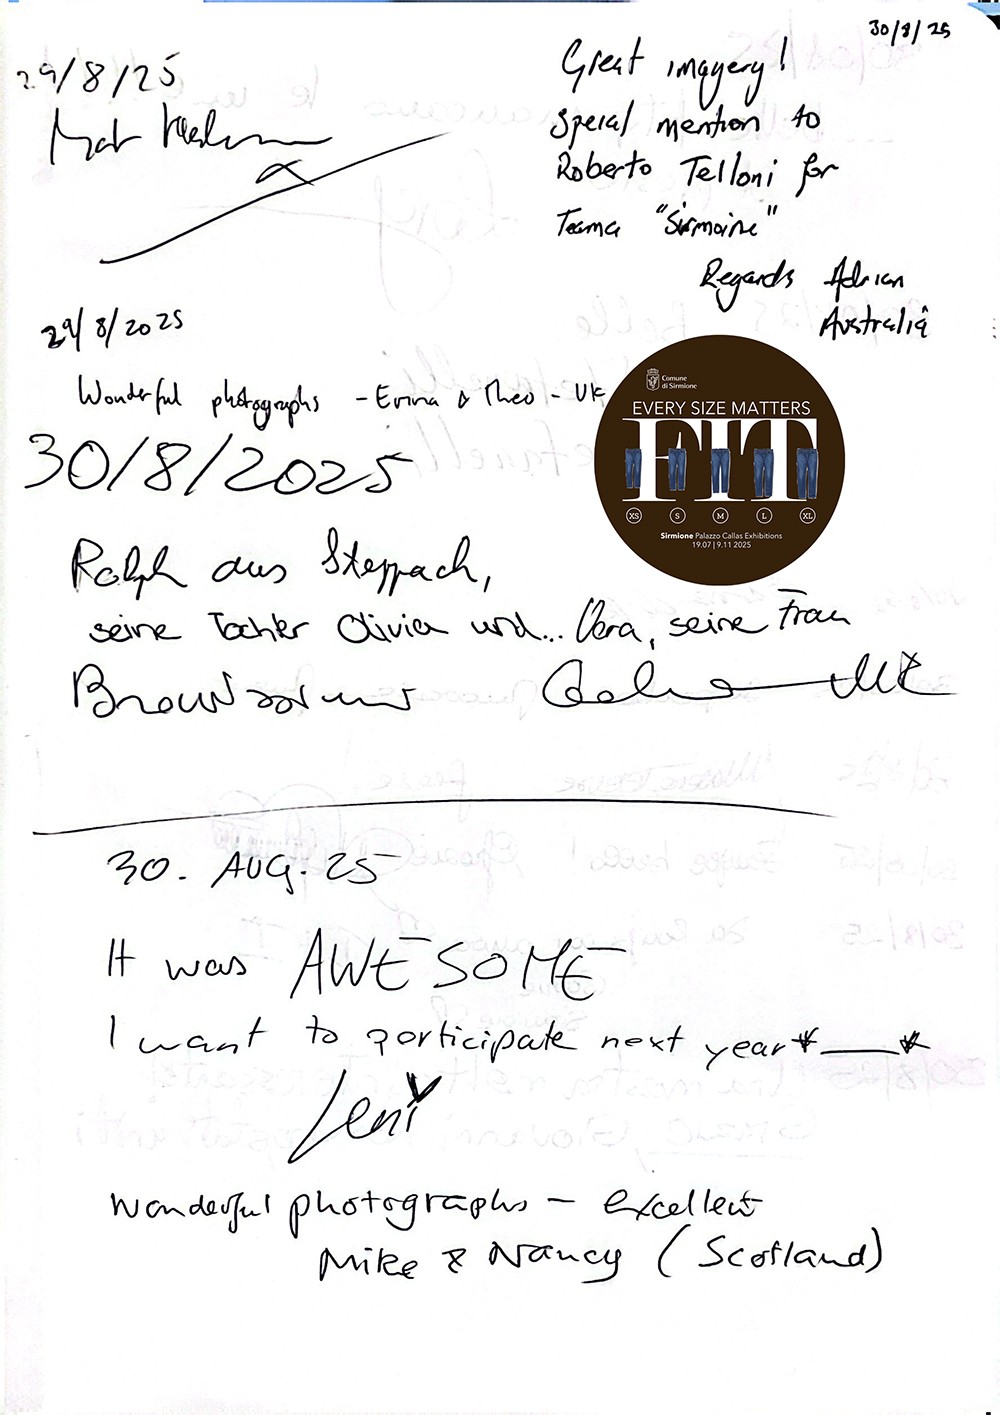 30/8/25
29/8/25
Great imagery!
Speral mention to
Roberto Telloni for
Teama "Sirmoine"
Regards Adrian
Australia
29/8/2025
Wonderful photographs - Emma & Theo - UK
30/8/2025
Comune
di Sirmione
EVERY SIZE MATTERS
FIT
XS S M L XL
Sirmione Palazzo Callas Exhibitions
19.07 | 9.11 2025
Ralph aus Steppach,
seine Tochter Olivia und... Vera, seine Frau
30. AUG. 25
It was AWESOME
I want to participate next year*___*
Leni
Wonderful photographs - excellent
Mike & Nancy (Scotland)